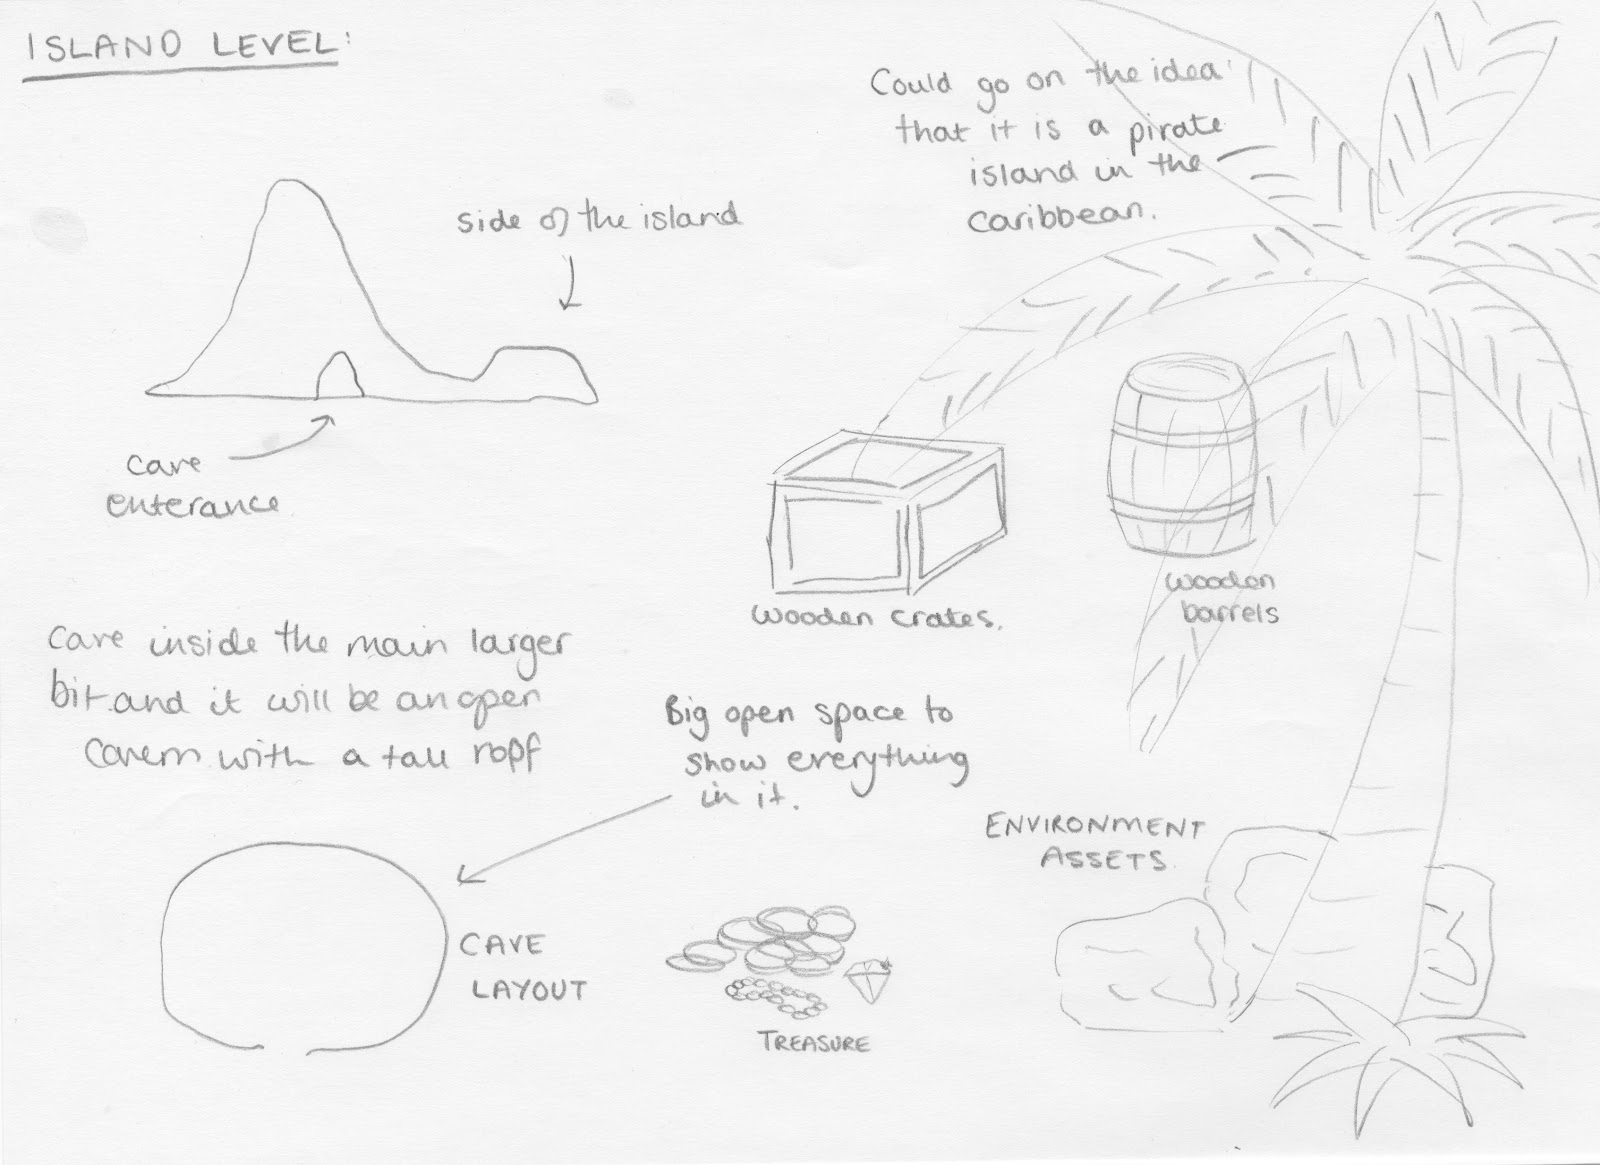 ISLAND LEVEL:
Could go on the idea
that it is a pirate
island in the
caribbean.
side of the island
cave
enterance
wooden crates.
wooden
barrels
cave inside the main larger
bit and it will be an open
cavern with a tall roof
Big open space to
show everything
in it.
ENVIRONMENT
ASSETS.
CAVE
LAYOUT
TREASURE